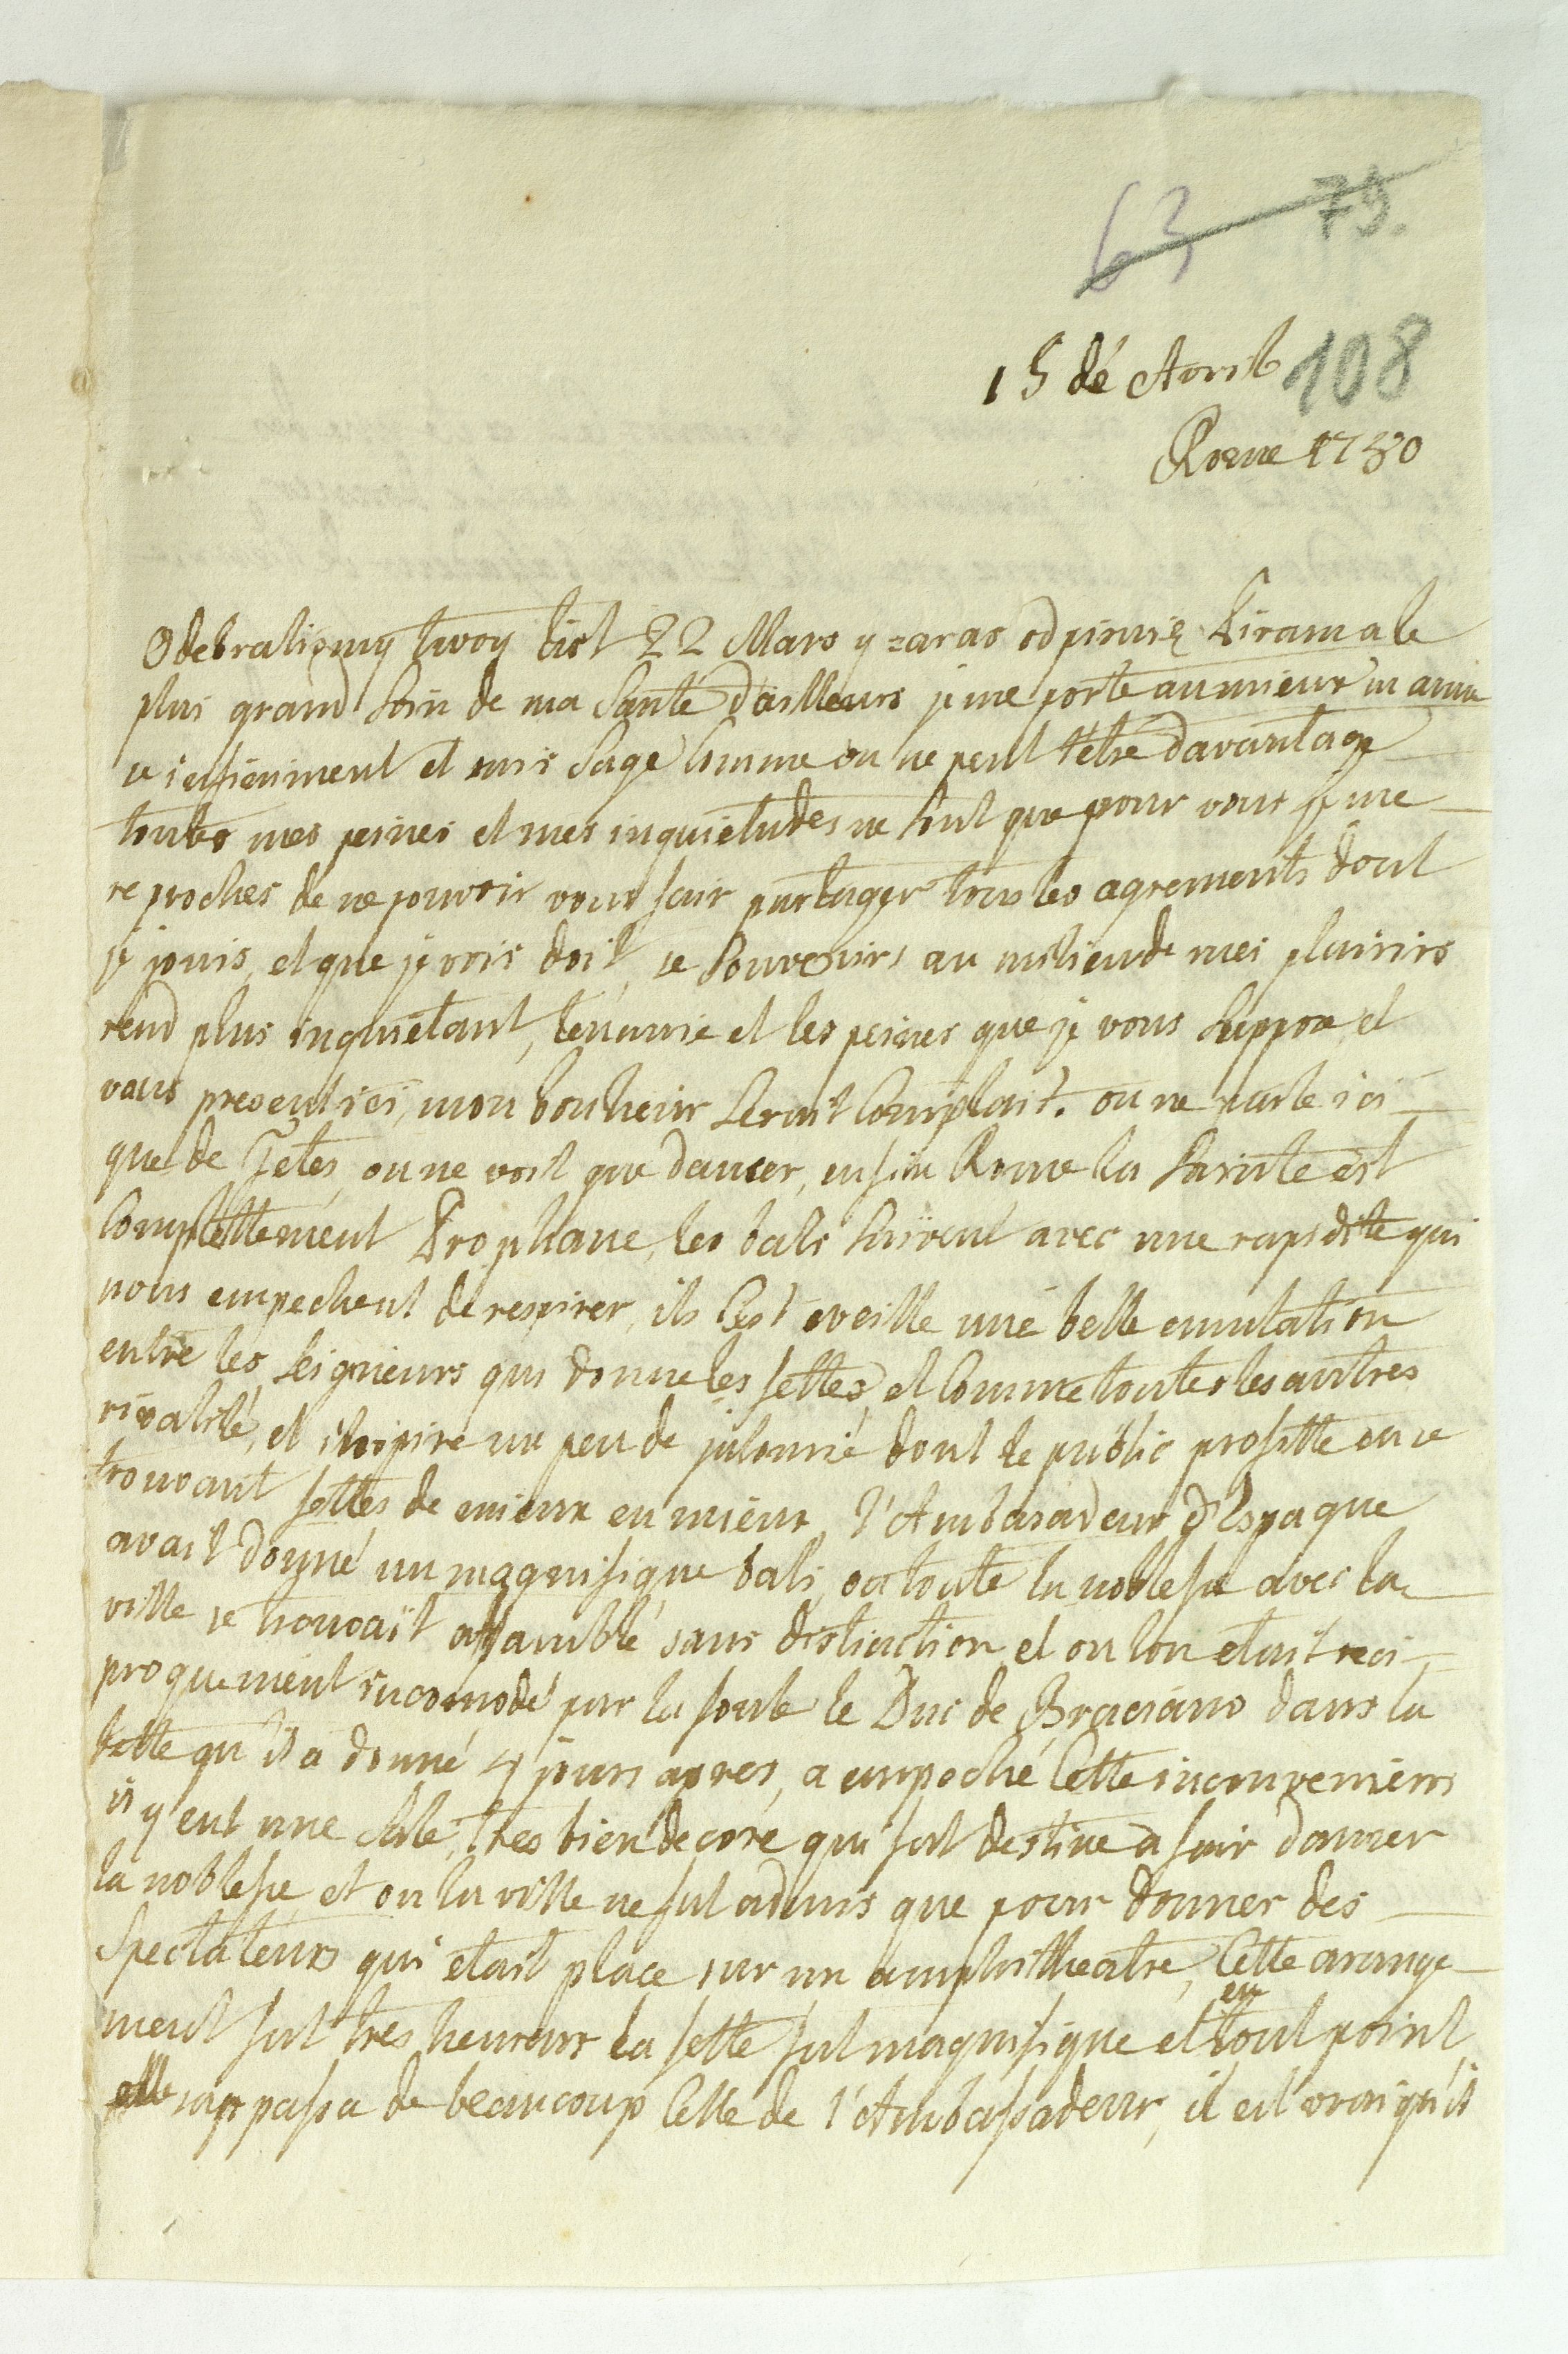 63 79.
15 dé Avril 108
Rome 1730
Odebralismy twoy list 22 Mars y zaras odpisuię Piram a le
plus grand soin de ma Santé d'ailleurs je me porte au mieux m amu
se infiniment et suis Sage Comme on ne peut l'etre davantage
toutes mes peines et mes inquietudes ne sont que pour vous je me
reproches de ne pouvoir vous fair partager tous les agrements dont
je jouis, et que je vois doit, ce Souvenirs au milieu de mes plaisirs
rend plus inquiétant, l'enuie et les peines que je vous Suppose, et
vous present ici, mon bonheur Serait Complait. on ne parle ici
que de Fetes, on ne voit que dancer, enfin Rome la Sainte est
Complettement Prophane, les bals Suivent avec une rapidite qui
nous empechent de respirer, ils Cest eveille une belle emulation
entre les Seignieurs qui donne les fettes, et Comme toutes les autres
rivalité, et inspire un peu de jalousie dont le public profitte en ce
trouvant fettes de mieux en mieux, l'Ambasadeur d'Espagne
avait donné un magnifique bals ou toute la noblesse avec la
ville se trouvait assamblé sans distinction et ou l'on etait reci-
proquement incomodé par la foule le Duc de Braciano dans la
fette qu'il a donné 4 jours apres, a empeché Cette inconveniens
il y eut une Sale, tres bien decoré qui fut destiné à fair danser
la noblesse et ou la ville ne fut admis que pour donner des
Spectateurs qui etait place sur un amphitheatre, Cette arange-
ment fut tres heureux la fette fut magnifique et en tout point
elle surpassa de beaucoup Celle de l'Ambassadeur, il est vrai qu'il